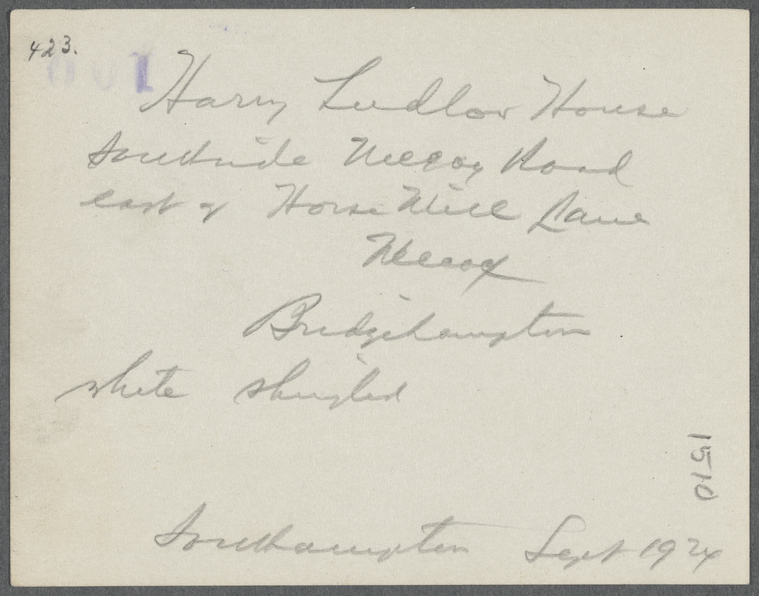 423.
001
Harry Ludlow House
Southside Mecox Road
east of Horse Mill Lane
Mecox
Bridgehampton
white shingled
1510
Southampton Sept 1924